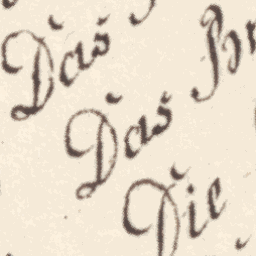 Das
Das
Die